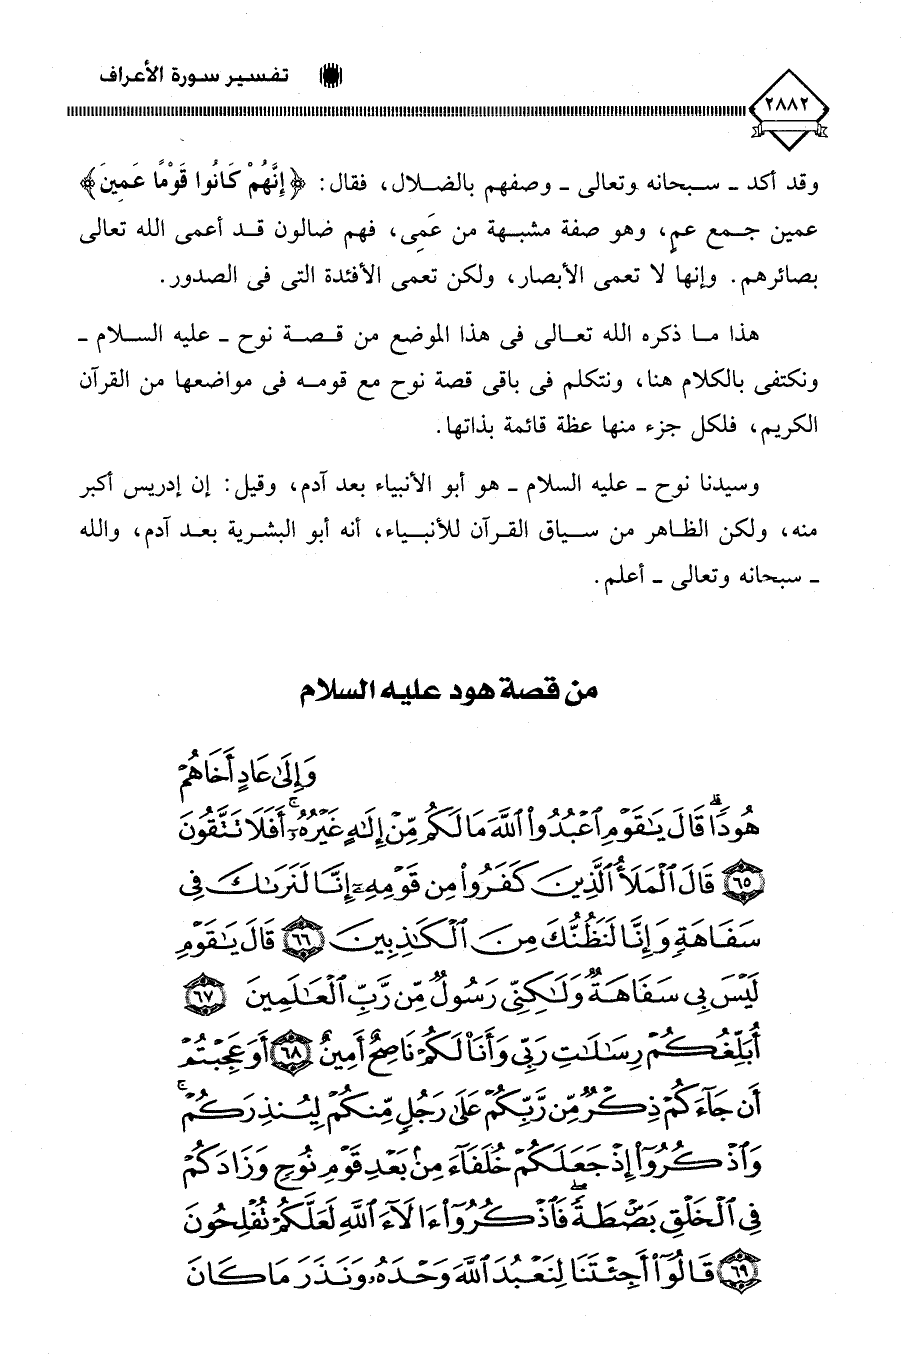 ٢٨٨٢
تفسير سورة الأعراف
وقد أكد ـ سبحانه وتعالى ـ وصفهم بالضلال، فقال: ﴿إِنَّهُمْ كَانُوا قَوْمًا عَمِينَ﴾
عمين جمع عمٍ، وهو صفة مشبهة من عَمِى، فهم ضالون قد أعمى الله تعالى
بصائرهم. وإنها لا تعمى الأبصار، ولكن تعمى الأفئدة التى فى الصدور.
هذا ما ذكره الله تعالى فى هذا الموضع من قصة نوح ـ عليه السلام ـ
ونكتفى بالكلام هنا، ونتكلم فى باقى قصة نوح مع قومه فى مواضعها من القرآن
الكريم، فلكل جزء منها عظة قائمة بذاتها.
وسيدنا نوح ـ عليه السلام ـ هو أبو الأنبياء بعد آدم، وقيل: إن إدريس أكبر
منه، ولكن الظاهر من سياق القرآن للأنبياء، أنه أبو البشرية بعد آدم، والله
ـ سبحانه وتعالى ـ أعلم.
من قصة هود عليه السلام
وَإِلَىٰ عَادٍ أَخَاهُمْ
هُودًاۗ قَالَ يَٰقَوْمِ ٱعْبُدُوا۟ ٱللَّهَ مَا لَكُم مِّنْ إِلَٰهٍ غَيْرُهُۥٓۚ أَفَلَا تَتَّقُونَ
﴿٦٥﴾ قَالَ ٱلْمَلَأُ ٱلَّذِينَ كَفَرُوا۟ مِن قَوْمِهِۦٓ إِنَّا لَنَرَىٰكَ فِى
سَفَاهَةٍ وَإِنَّا لَنَظُنُّكَ مِنَ ٱلْكَٰذِبِينَ ﴿٦٦﴾ قَالَ يَٰقَوْمِ
لَيْسَ بِى سَفَاهَةٌ وَلَٰكِنِّى رَسُولٌ مِّن رَّبِّ ٱلْعَٰلَمِينَ ﴿٦٧﴾
أُبَلِّغُكُمْ رِسَٰلَٰتِ رَبِّى وَأَنَا۠ لَكُمْ نَاصِحٌ أَمِينٌ ﴿٦٨﴾ أَوَعَجِبْتُمْ
أَن جَآءَكُمْ ذِكْرٌ مِّن رَّبِّكُمْ عَلَىٰ رَجُلٍ مِّنكُمْ لِيُنذِرَكُمْۚ
وَٱذْكُرُوٓا۟ إِذْ جَعَلَكُمْ خُلَفَآءَ مِنۢ بَعْدِ قَوْمِ نُوحٍ وَزَادَكُمْ
فِى ٱلْخَلْقِ بَصْۜطَةًۖ فَٱذْكُرُوٓا۟ ءَالَآءَ ٱللَّهِ لَعَلَّكُمْ تُفْلِحُونَ
﴿٦٩﴾ قَالُوٓا۟ أَجِئْتَنَا لِنَعْبُدَ ٱللَّهَ وَحْدَهُۥ وَنَذَرَ مَا كَانَ